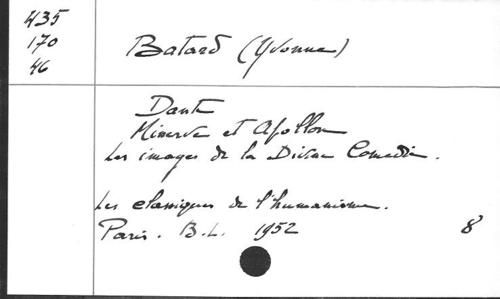 435
170
46
Batard (Yvonne)
Dante
Minerve et Apollon
Les images de la Divine Comedie.
Les classiques de l'humanisme.
Paris. B.L. 1952 8